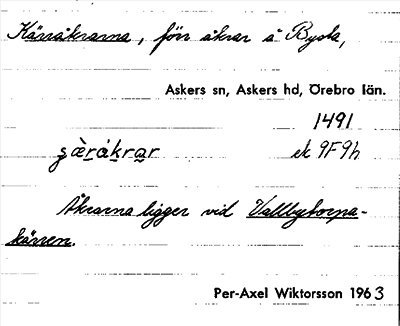 Kärråkrarna, förr åkrar å Bysta,
Askers sn, Askers hd, Örebro län.
1491
ek 9F9h
Åkrarna ligger vid Vallbytorpa-
kärren.
Per-Axel Wiktorsson 1963